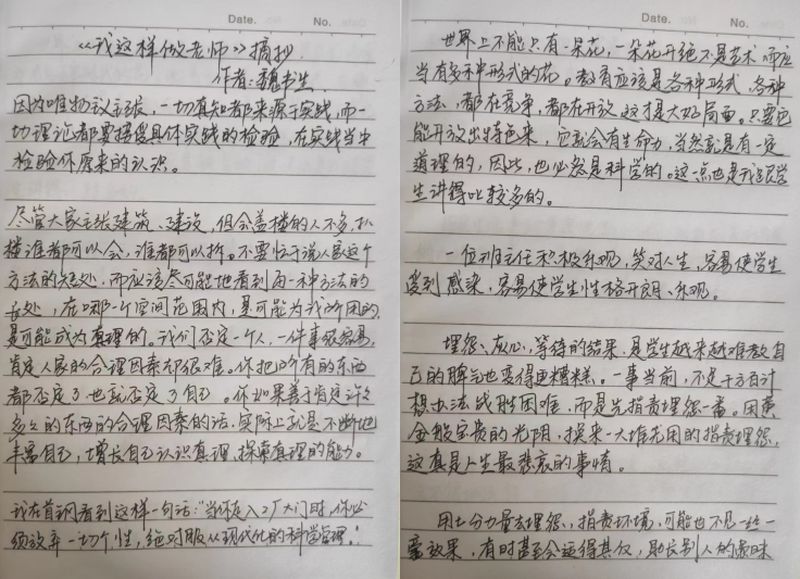 Date.    No.
《我这样做老师》摘抄
作者:魏书生
因为唯物论主张，一切真知都来源于实践，而一
切理论都要接受具体实践的检验，在实践当中
检验你原来的认识。
尽管大家主张建筑、建设，但会盖楼的人不多，扒
楼谁都可以会，谁都可以拆。不要忙于说人家这个
方法的短处，而应该尽可能地看到每一种方法的
长处，在哪一个空间范围内，是可能为我所用的，
是可能成为真理的。我们否定一个人，一件事很容易，
肯定人家的合理因素却很难。你把所有的东西
都否定了也就否定了自己。你如果善于肯定许许
多多的东西的合理因素的话，实际上就是不断地
丰富自己，增长自己认识真理、探索真理的能力。
我在首钢看到这样一句话:“当你走入工厂大门时，你必
须放弃一切个性，绝对服从现代化的科学管理。”
Date.    No.
世界上不能只有一朵花，一朵花开绝不是艺术，而应
当有多种形式的花。教育应该是各种形式，各种
方法，都在竞争，都在开放，这才是大好局面。只要它
能开放出特色来，它就会有生命力，当然就是有一定
道理的，因此，也必然是科学的。这一点也是我跟学
生讲得比较多的。
一位班主任积极乐观，笑对人生，容易使学生
受到感染，容易使学生性格开朗、乐观。
埋怨、灰心、等待的结果，是学生越来越难教，自
己的脾气也变得更糟糕。一事当前，不是千方百计
想办法战胜困难，而是先指责埋怨一番。用黄
金般宝贵的光阴，换来一大堆无用的指责埋怨，
这真是人生最悲哀的事情。
用七分力量去埋怨、指责环境，可能也不见一丝一
毫效果，有时甚至会适得其反，助长别人的愚昧